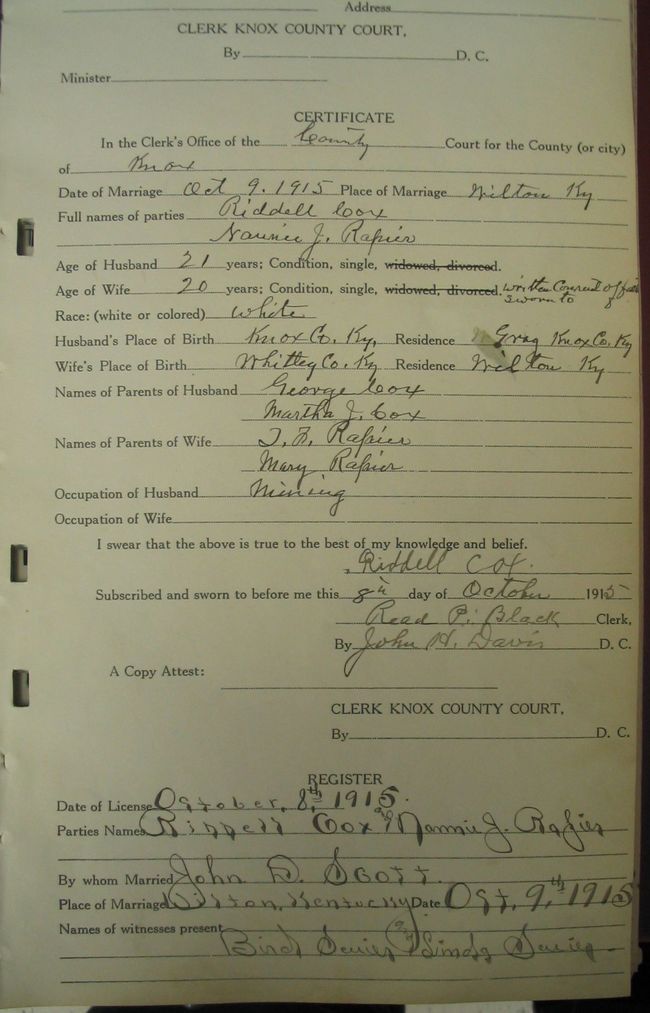 Address
CLERK KNOX COUNTY COURT,
By D. C.
Minister
CERTIFICATE
In the Clerk's Office of the County Court for the County (or city)
of Knox
Date of Marriage Oct 9. 1915 Place of Marriage Wilton Ky
Full names of parties Riddell Cox
J. Rapier
Age of Husband 21 years; Condition, single, widowed, divorced.
Age of Wife 20 years; Condition, single, widowed, divorced. written Consent of
sworn to
Race: (white or colored) white
Husband's Place of Birth Knox Co. Ky, Residence Gray Knox Co. Ky
Wife's Place of Birth Whitley Co. Ky Residence Wilton Ky
Names of Parents of Husband George Cox
Martha J. Cox
Names of Parents of Wife T. F. Rapier
Mary Rapier
Occupation of Husband Mining
Occupation of Wife
I swear that the above is true to the best of my knowledge and belief.
Riddell Cox.
Subscribed and sworn to before me this 8th day of October 1915
Read P. Black Clerk,
By John H. Davis D. C.
A Copy Attest:
CLERK KNOX COUNTY COURT,
By D. C.
REGISTER
Date of License October, 8th, 1915.
Parties Names Riddell Cox and Nannie J. Rapier
By whom Married John D. Scott.
Place of Marriage Wilton, Kentucky Date Oct, 9,th 1915
Names of witnesses present
Bird and